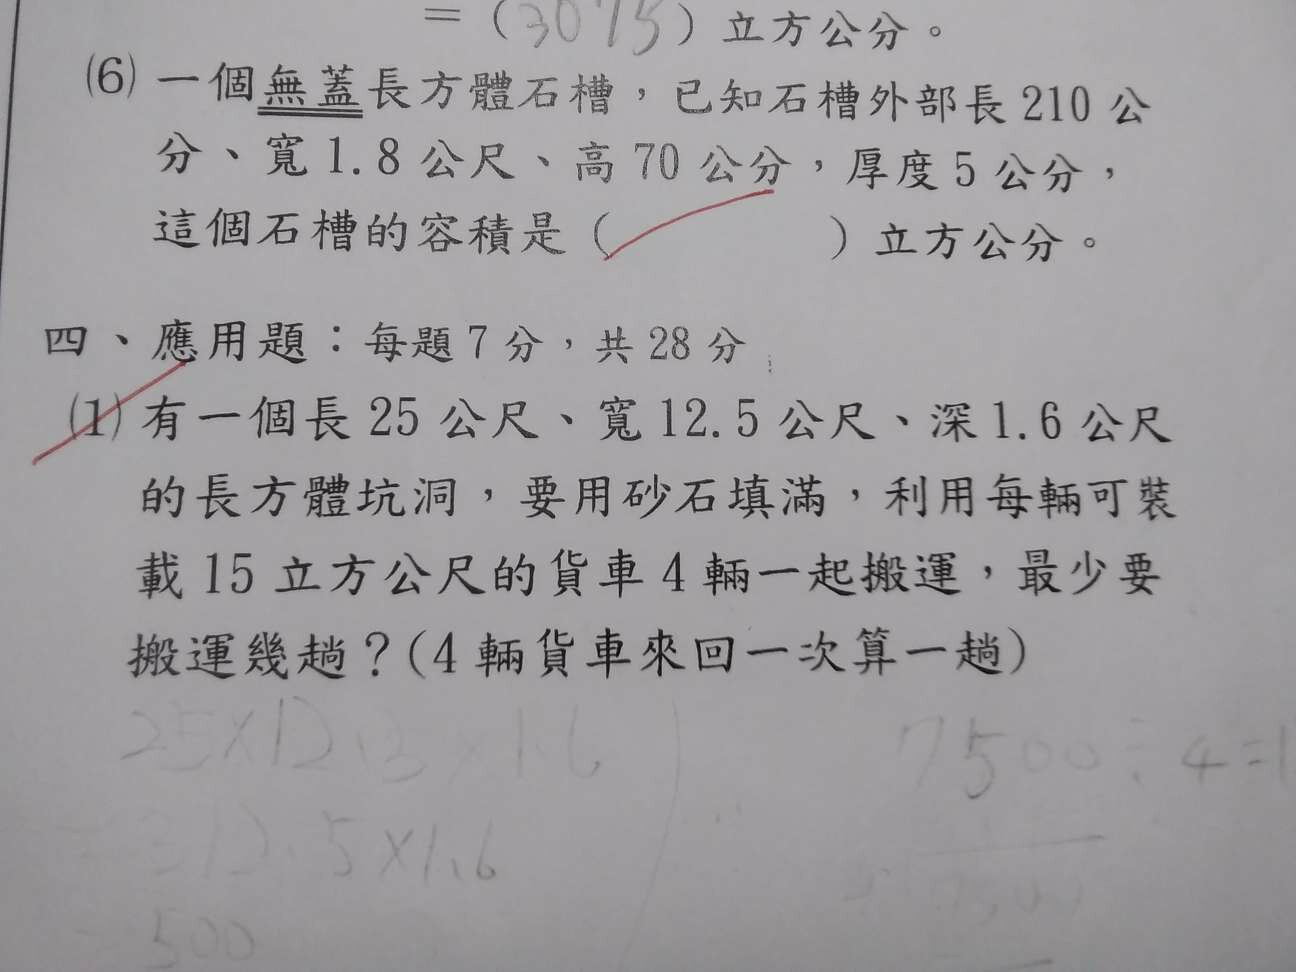 =(3075)立方公分。
(6)一個無蓋長方體石槽，已知石槽外部長210公
分、寬1.8公尺、高70公分，厚度5公分，
這個石槽的容積是(　　　　)立方公分。
四、應用題：每題7分，共28分
(1)有一個長25公尺、寬12.5公尺、深1.6公尺
的長方體坑洞，要用砂石填滿，利用每輛可裝
載15立方公尺的貨車4輛一起搬運，最少要
搬運幾趟？(4輛貨車來回一次算一趟)
25×12.5×1.6
7500÷4=1
312.5×1.6
7500
500